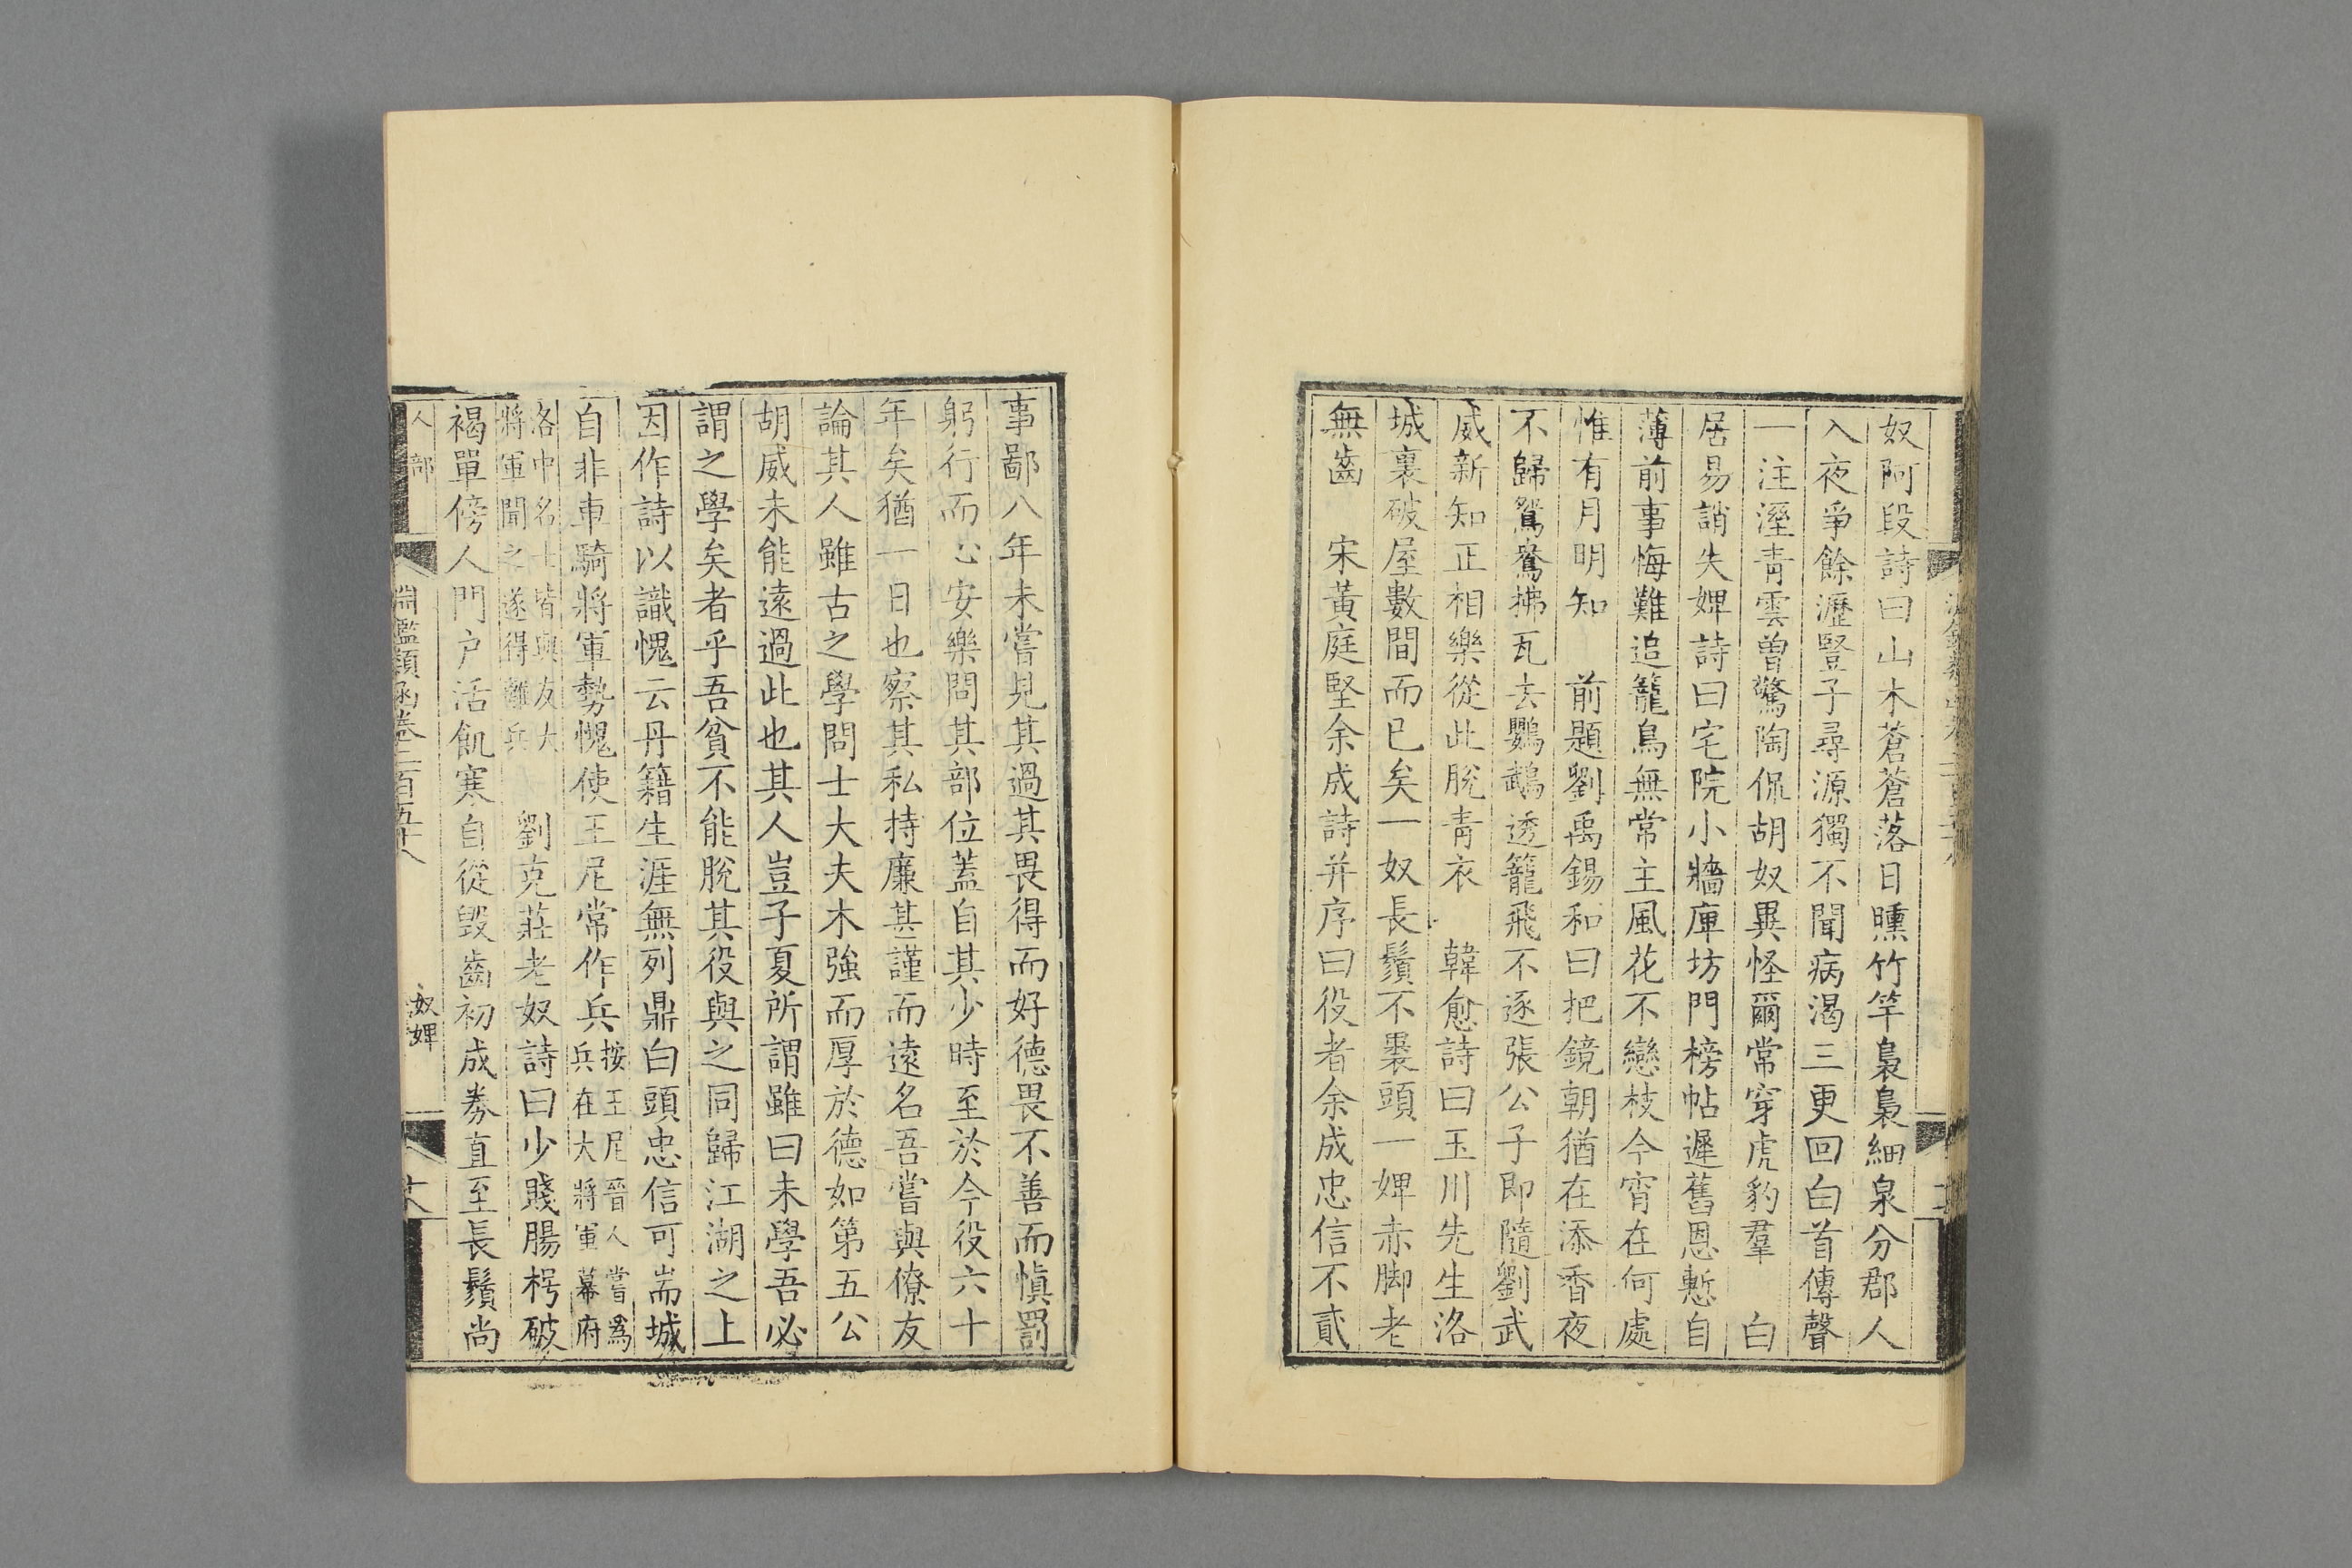 奴阿段詩曰山木蒼蒼落日曛竹竿裊裊細泉分郡人
入夜爭餘瀝豎子尋源獨不聞病渴三更回白首傳聲
一注溼青雲曾驚陶侃胡奴異怪爾常穿虎豹羣 白
居易誚失婢詩曰宅院小牆庳坊門榜帖遲舊恩慙自
薄前事悔難追籠鳥無常主風花不戀枝今宵在何處
惟有月明知 前題劉禹錫和曰把鏡朝猶在添香夜
不歸鴛鴦拂瓦去鸚鵡透籠飛不逐張公子即隨劉武
威新知正相樂從此脫青衣 韓愈詩曰玉川先生洛
城裏破屋數間而已矣一奴長鬚不裹頭一婢赤脚老
無齒 宋黃庭堅余成詩并序曰役者余成忠信不貳
事鄙八年未嘗見其過其畏得而好德畏不善而慎罰
躬行而心安樂問其部位蓋自其少時至於今役六十
年矣猶一日也察其私持廉甚謹而遠名吾嘗與僚友
論其人雖古之學問士大夫木強而厚於德如第五公
胡威未能遠過此也其人豈子夏所謂雖曰未學吾必
謂之學矣者乎吾貧不能脫其役與之同歸江湖之上
因作詩以識愧云丹籍生涯無列鼎白頭忠信可耑城
自非車騎將軍勢愧使王尼常作兵按王尼晉人嘗爲兵在大將軍幕府
洛中名士皆與友大將軍聞之遂得離兵 劉克莊老奴詩曰少賤腸枵破
褐單傍人門户活飢寒自從毀齒初成券直至長鬚尚
人部 淵鑑類函卷二百五十八 奴婢